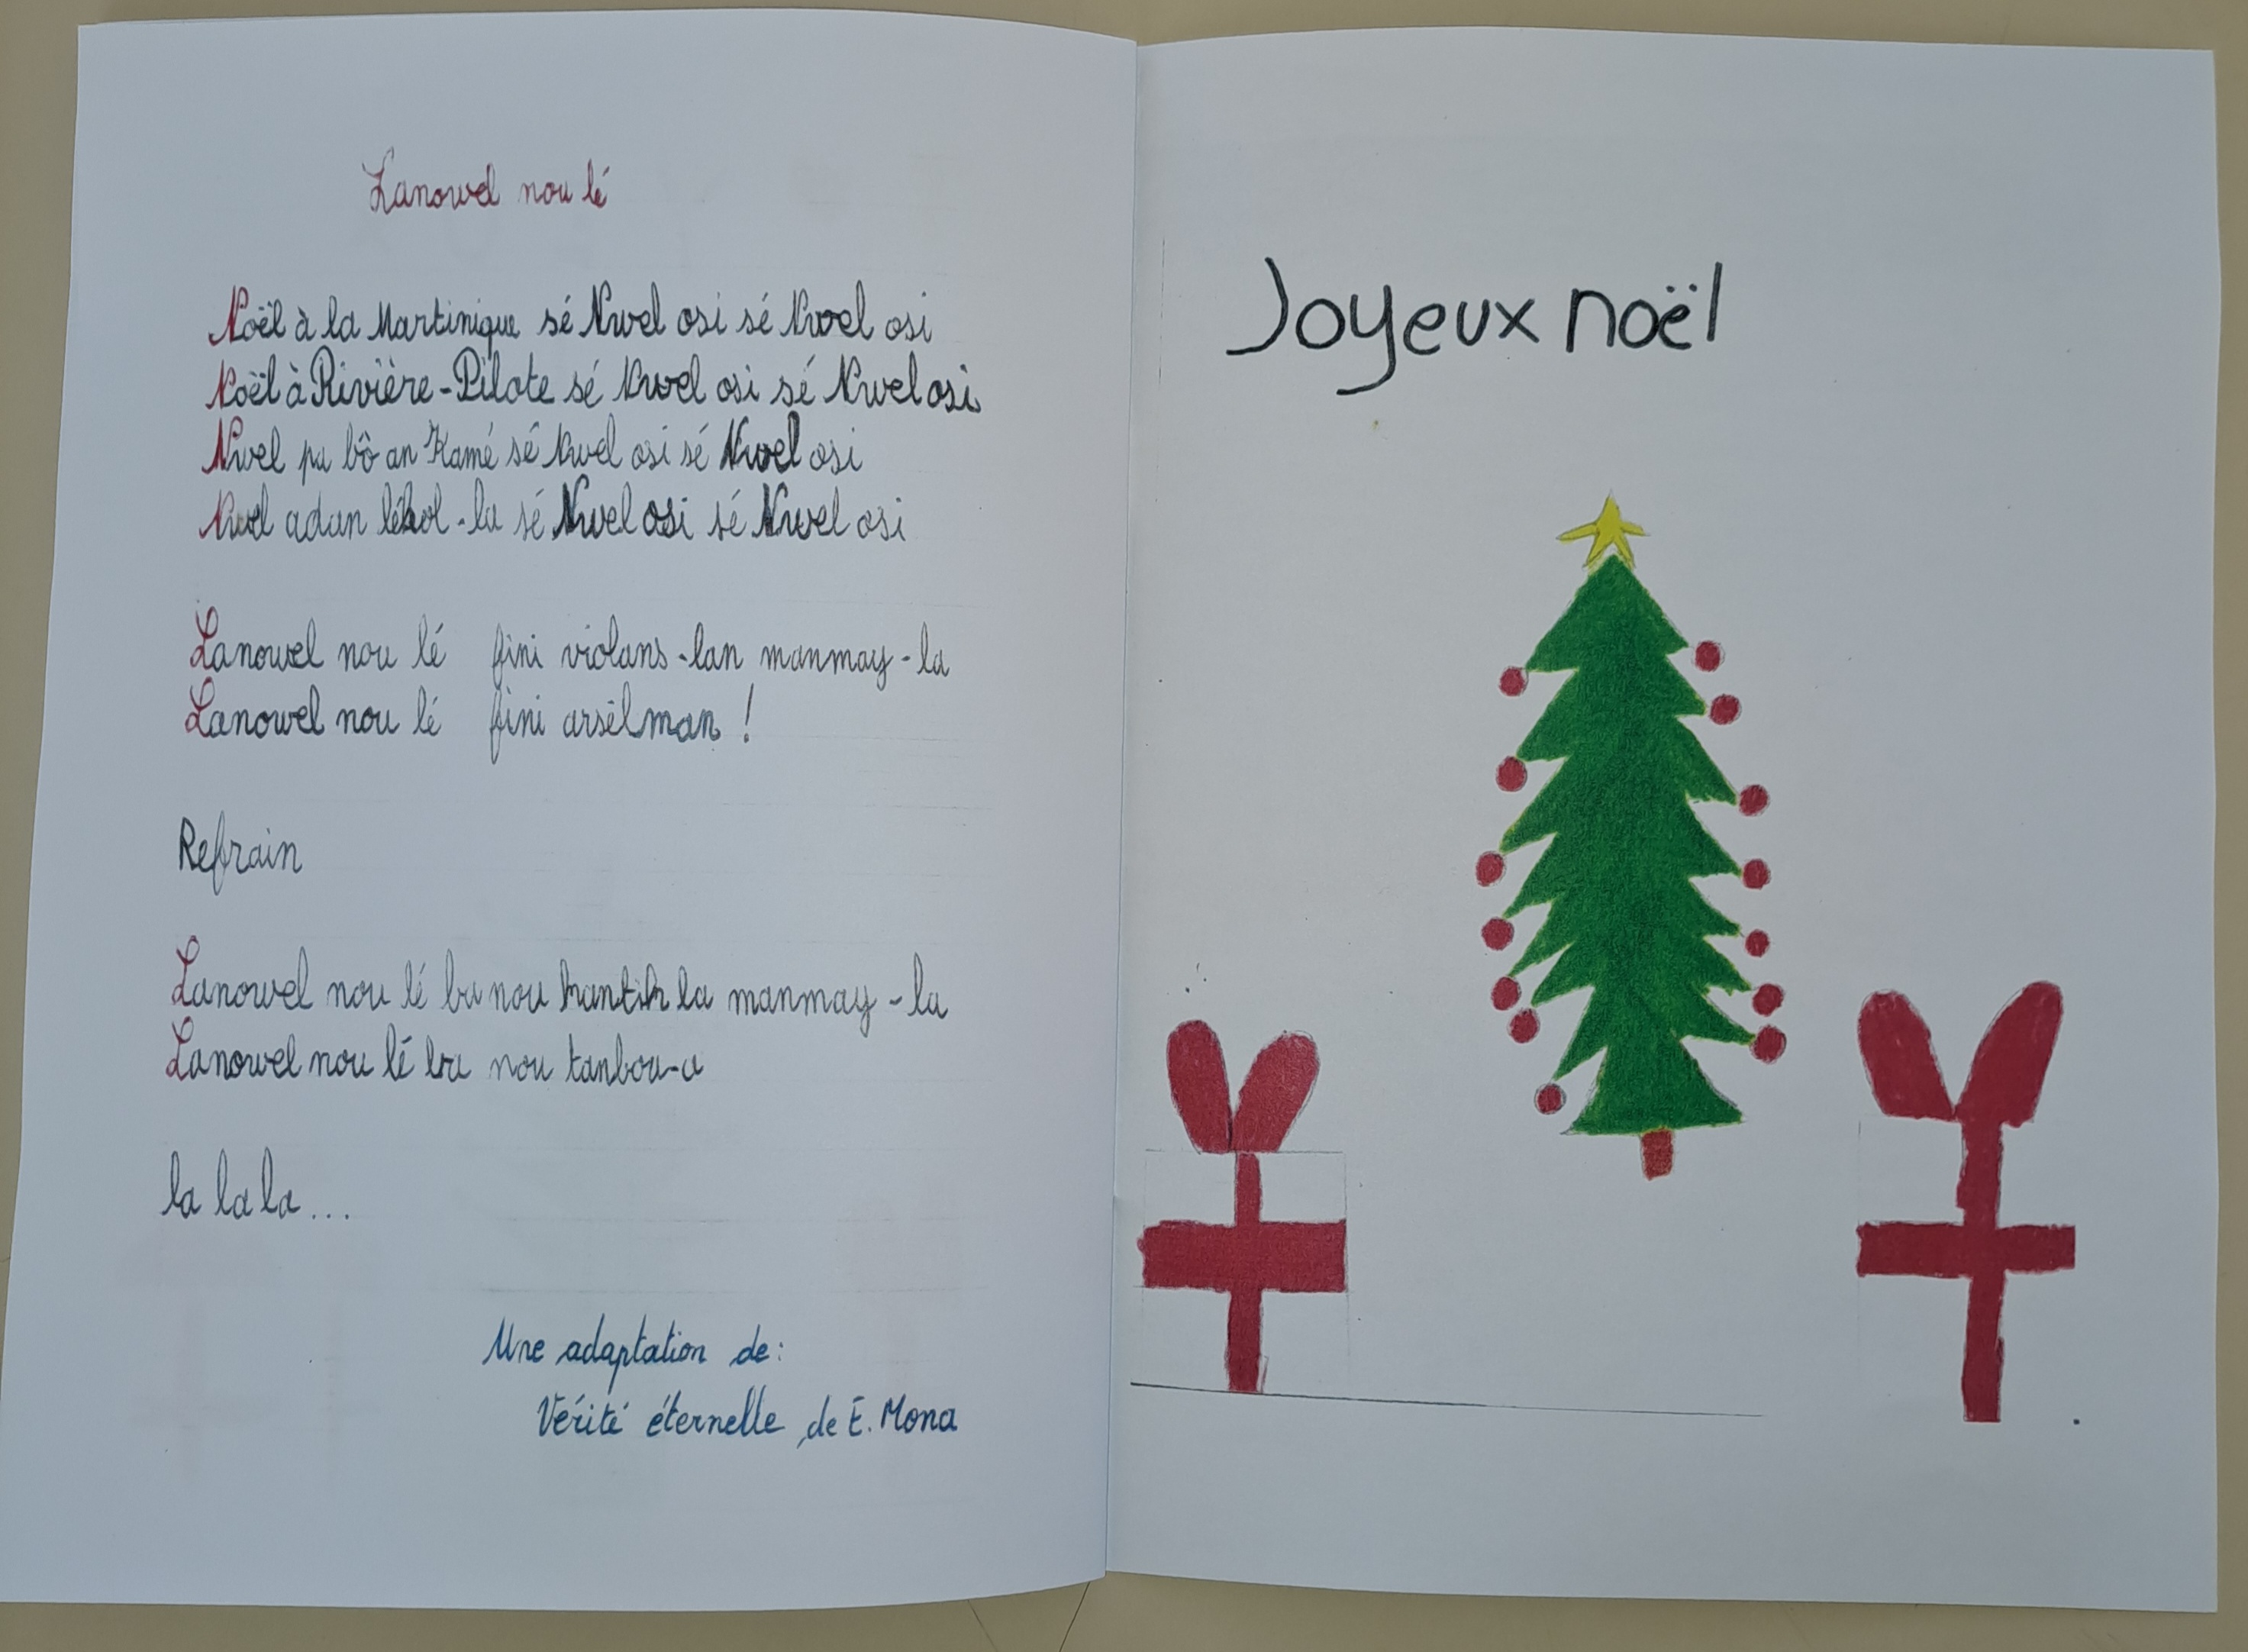 Lanowel nou lé
Noël à la Martinique sé Nwel osi sé Nwel osi
Noël à Rivière-Pilote sé Nwel osi sé Nwel osi
Nwel pa bô an Kamé sé Nwel osi sé Nwel osi
Nwel adan lékol-la sé Nwel osi sé Nwel osi
Lanowel nou lé fini violans-lan manmay-la
Lanowel nou lé fini arsèlman !
Refrain
Lanowel nou lé ba nou kantik la manmay-la
Lanowel nou lé ba nou tanbou-a
la la la ...
Une adaptation de :
Vérité éternelle, de E. Mona
Joyeux noël